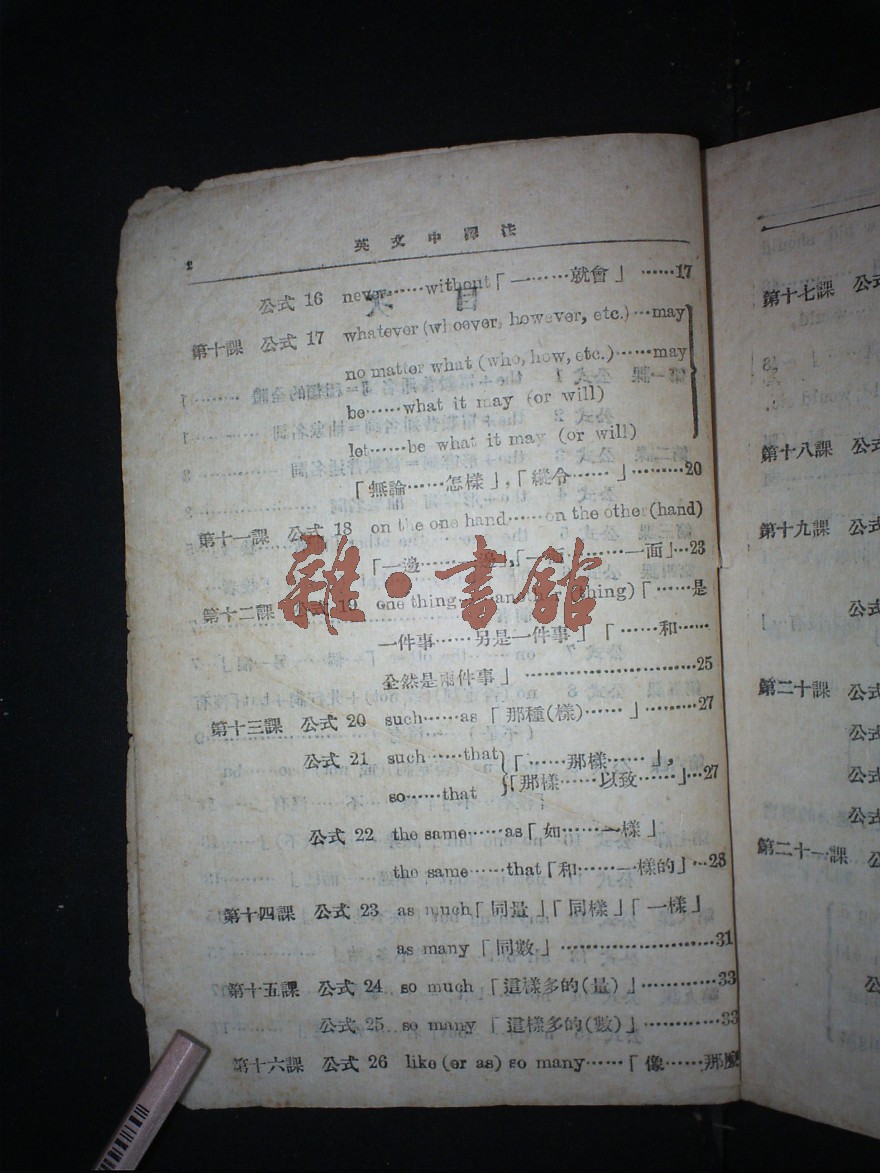 英文中譯法
2
公式 16 never……without「一……就會」……17
第十課 公式 17 whatever (whoever, however, etc.)…may
no matter what (who, how, etc.)……may
be……what it may (or will)
let……be what it may (or will)
「無論……怎樣」,「縱令……」………20
第十一課 公式 18 on the one hand……on the other (hand)
「一邊………邊」,「一面………一面」…23
第十二課 公式 19 one thing (thing)「……是
一件事……另是一件事」「……和……
全然是兩件事」……………………25
第十三課 公式 20 such……as「那種(樣)……」………27
公式 21 such……that「……那樣……」,
so……that「那樣……以致……」…27
公式 22 the same……as「如……一樣」
the same……that「和……一樣的」…28
第十四課 公式 23 as much「同量」「同樣」「一樣」
as many「同數」……………………31
第十五課 公式 24 so much「這樣多的(量)」…………33
公式 25 so many「這樣多的(數)」…………33
第十六課 公式 26 like (or as) so many……「像……那麼
第十七課
第十八課
第十九課
第二十課
第二十一課
雜·書館